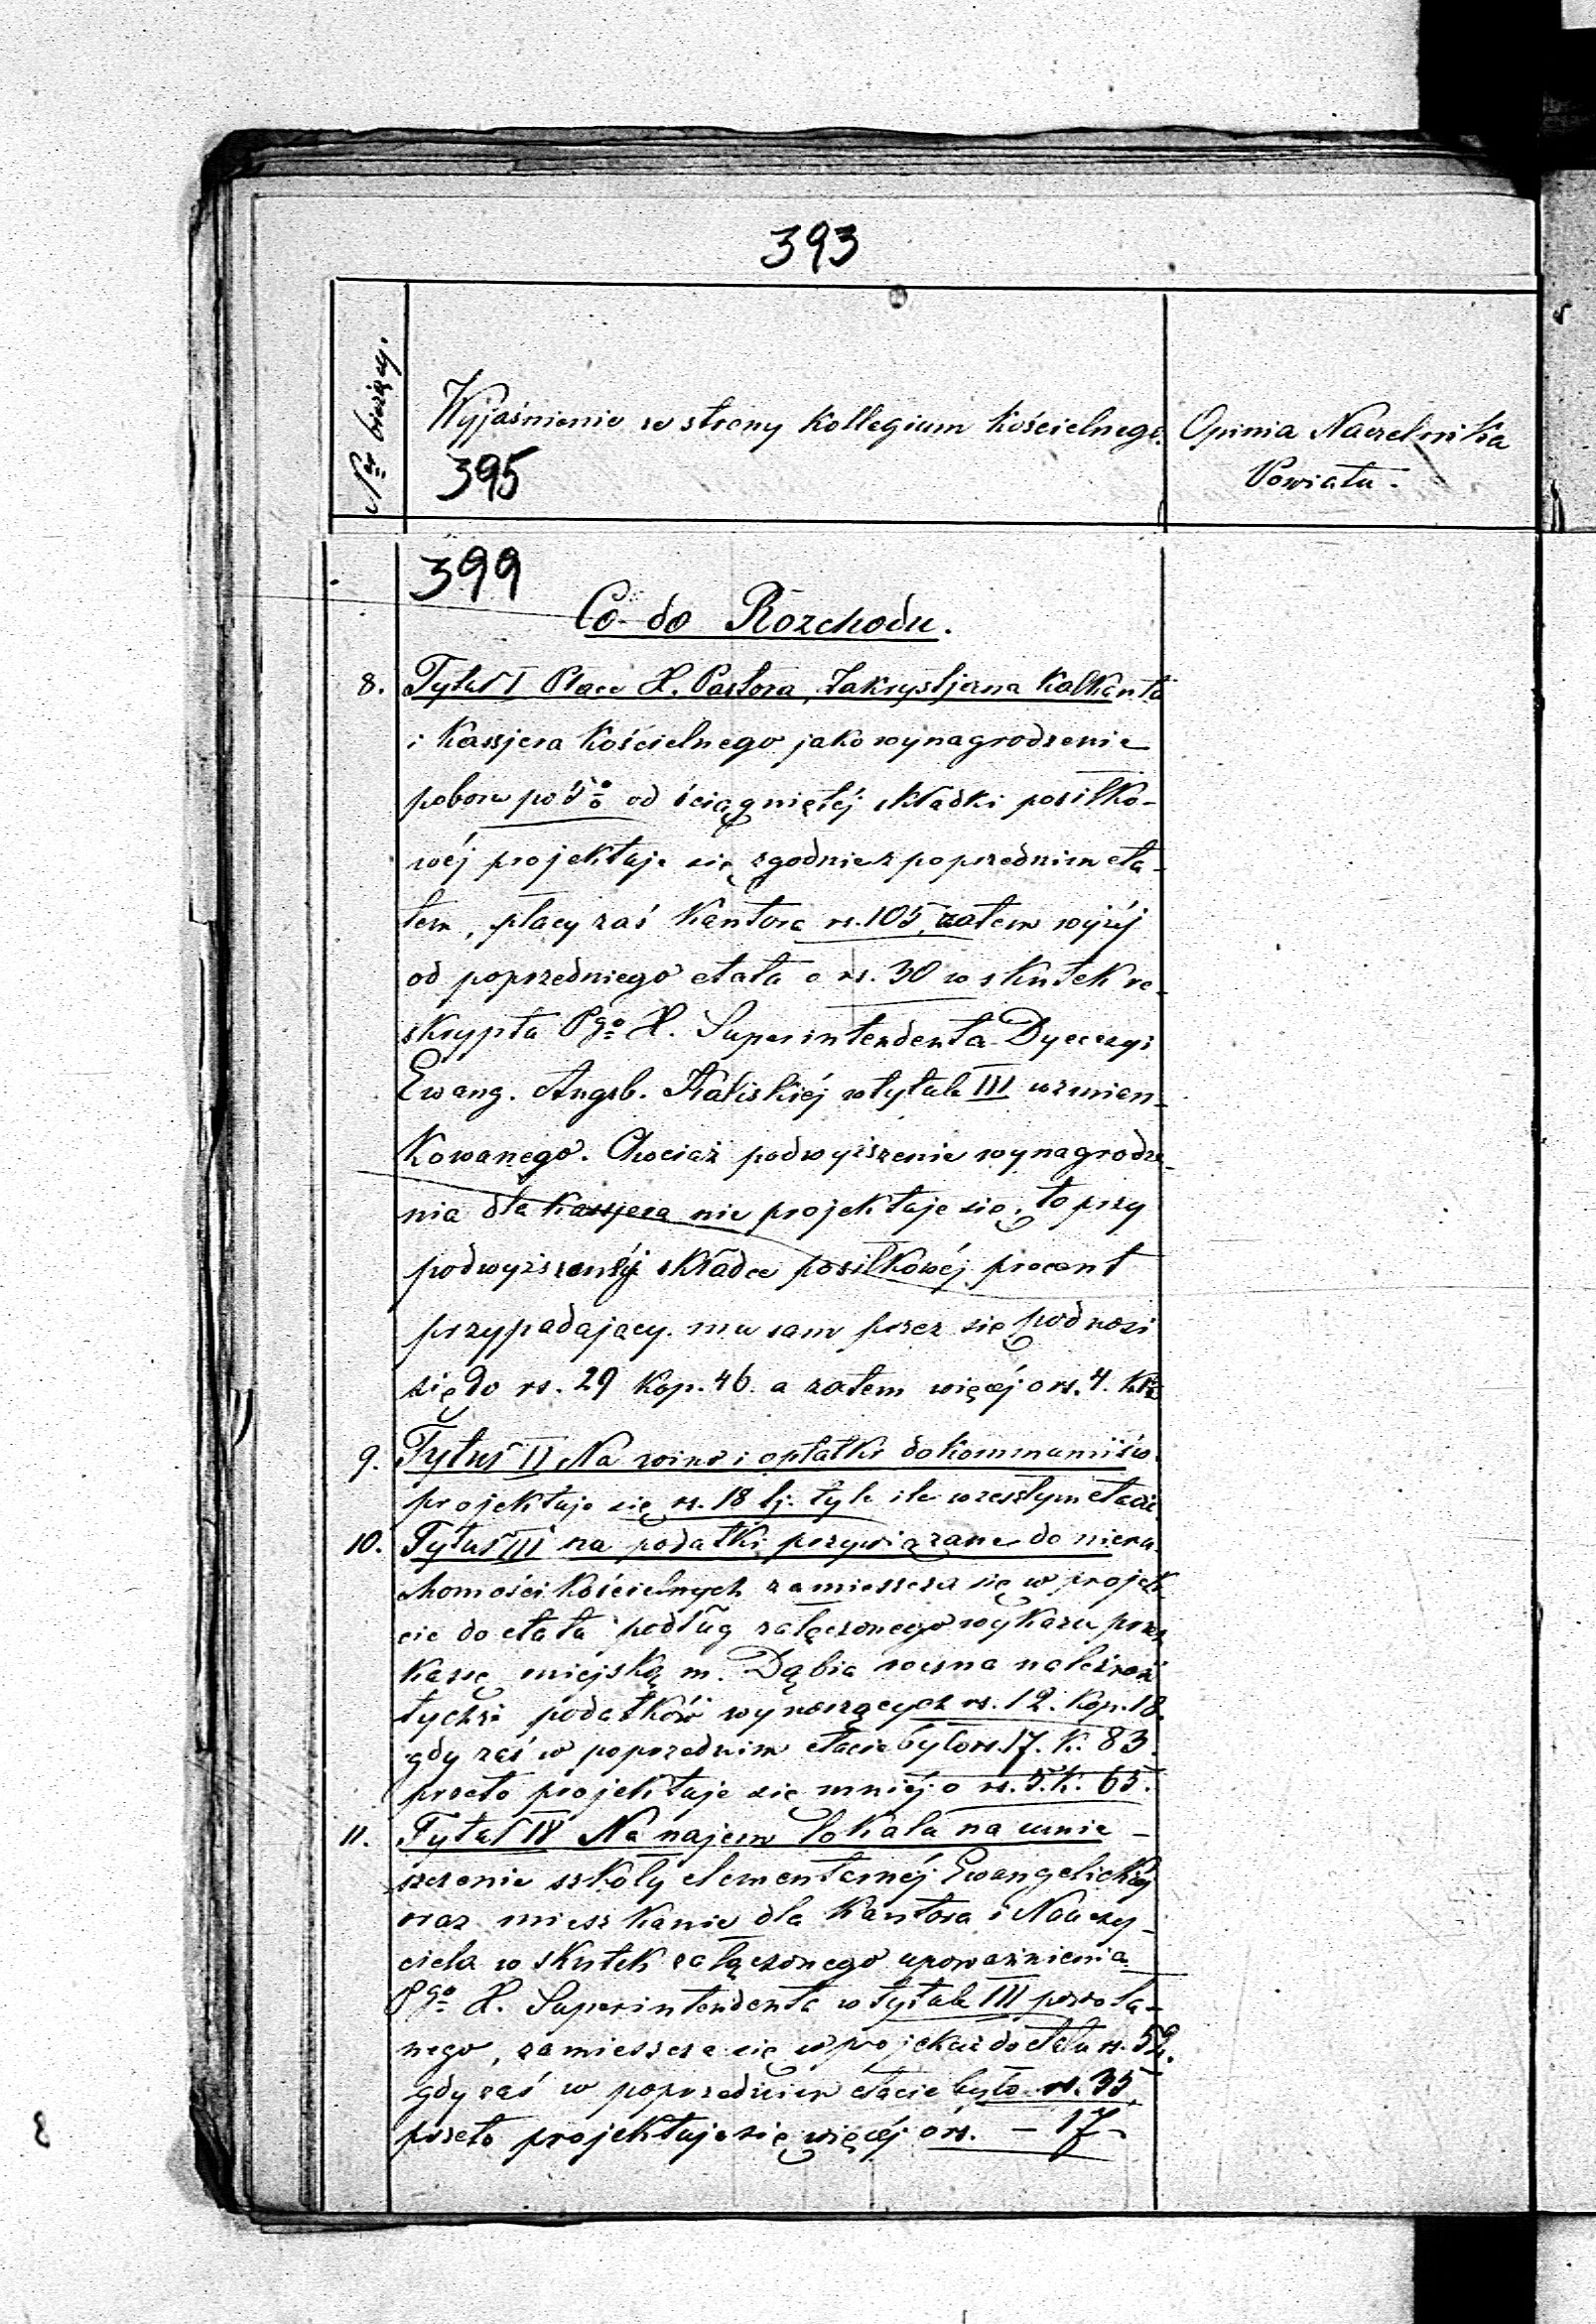 393
Nr bieżący.
Wyjaśnienie ze strony Kollegium Kościelnego.
Opinia Naczelnika
Powiatu.
395
399
Co do Rozchodu.
8. Tytuł I Płace X. Pastora, Zakrystjana Kalkanta
i Kassjera Kościelnego jako wynagrodzenie
poboru po 5% od ściągniętéj składki posiłko-
wéj projektuje się zgodnie z poprzednim eta-
tem, płacy zaś Kantora rs. 105, zatem wyżéj
od poprzedniego etatu o rs. 30 w skutek re-
skryptu Pgo X. Superintendenta Dyecezyi
Ewang. Augsb. Kaliskiéj w tytule III wzmian-
kowanego. Chociaż podwyższenie wynagrodze-
nia dla Kassjera nie projektuje się, to przy
podwyższonéj składce posiłkowéj procent
przypadający mu sam przez się podnosi
się do rs. 29 kop. 46. a zatem więcéj o rs. 4.
9. Tytuł II Na wino i opłatki do kommunii św.
projektuje się rs. 18 tj. tyle ile w zeszłym etacie
10. Tytuł III na podatki przywiązane do nieru-
chomości Kościelnych zamieszcza się w projek-
cie do etatu podług załączonego wykazu przez
Kasę miejską m. Dąbia roczna należność
tychże podatków wynoszących rs. 12. kop. 18.
gdy zaś w poprzednim etacie było rs. 17. k. 83.
przeto projektuje się mniéj o rs. 5. k. 65.
11. Tytuł IV Na najem lokalu na umie-
szczenie szkoły elementarnéj Ewangelickiéj
oraz mieszkanie dla Kantora i Nauczy-
ciela w skutek załączonego upoważnienia
Pgo X. Superintendenta w tytule III powoła-
nego, zamieszcza się w projekcie do etatu rs. 52.
gdy zaś w poprzednim etacie było rs. 35,
przeto projektuje się więcéj o rs. – 17 –